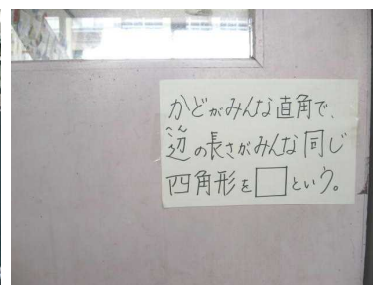 かどがみんな直角で、
辺の長さがみんな同じ
四角形を□という。